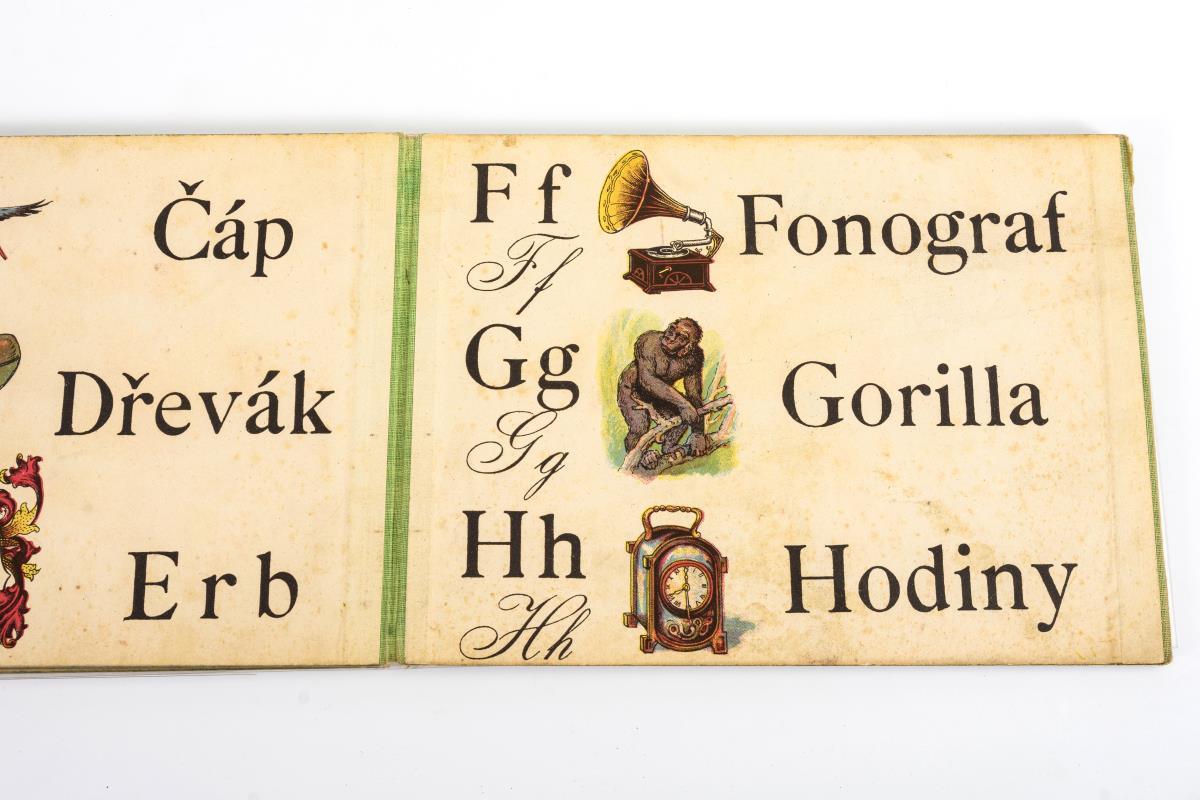 Čáp
Dřevák
Erb
F f
F f
Fonograf
Gg
G g
Gorilla
Hh
Hh
Hodiny